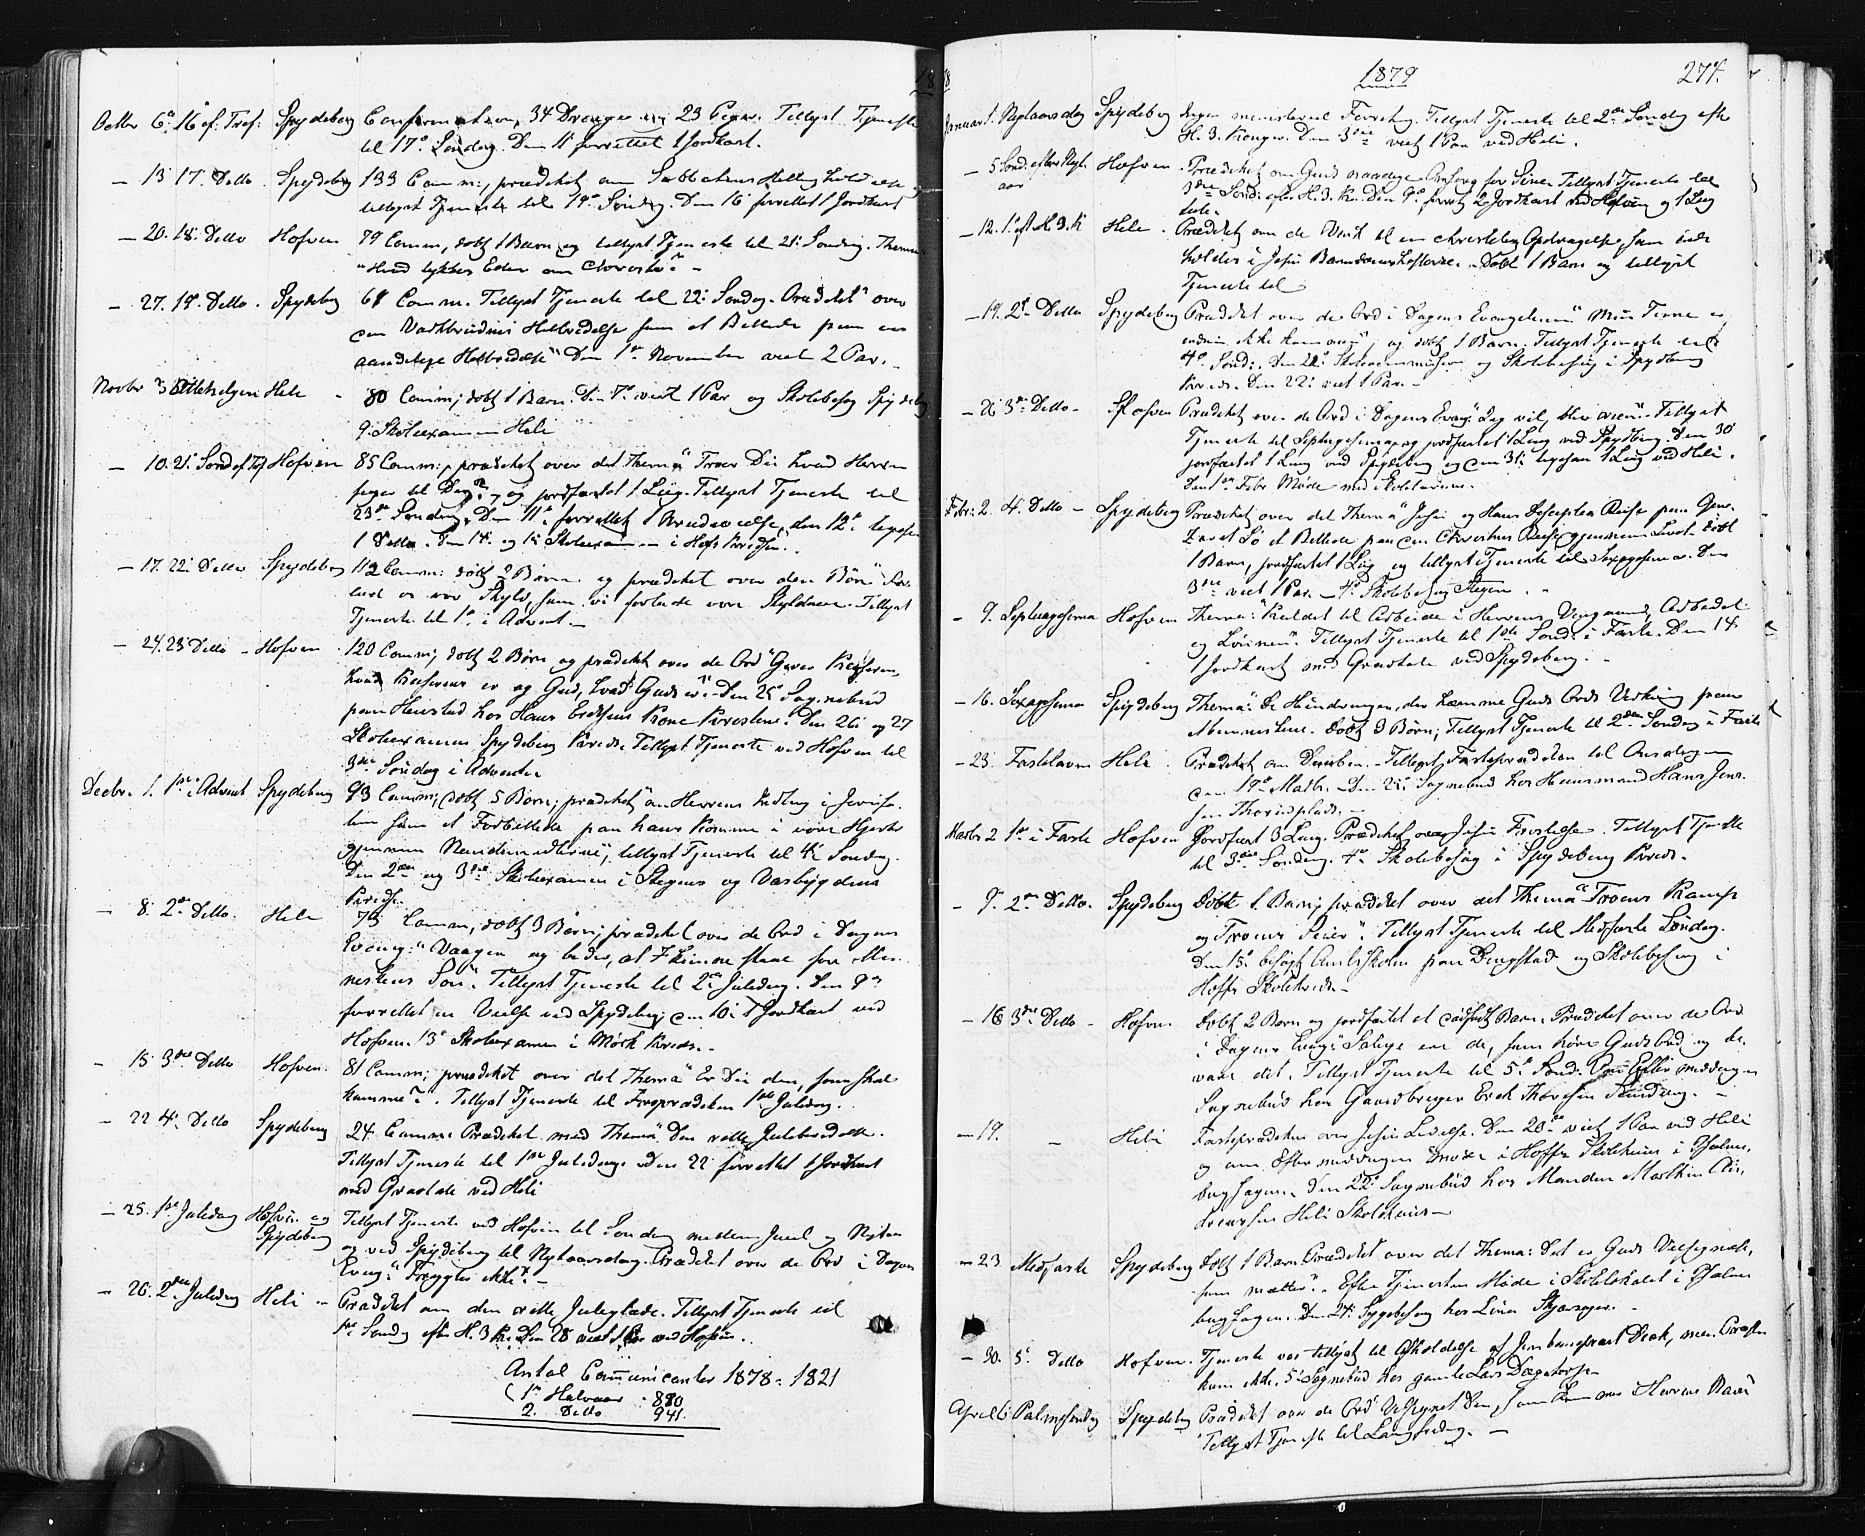 18
Octbr 6te 16 ef. Tref. Spydeberg Confirmation, 34 Drenge og 23 Piger. Tillyst Tjeneste
til 17de Søndag. Den 11te forrettet 1 Jordkast.
— 13 17. Detto. Spydeberg 133 Comm:, prædiket om Sabbathens Helligholdelse og
tillyst Tjeneste til 19de Søndag. Den 16 forrettet 1 Jordkast
— 20. 18. Detto Hofvin 79 Comm, døbt 1 Barn og tillyst Tjeneste til 21: Søndag. Thema
"Hvad tykkes Eder om Christo?" —
— 27. 19. Detto. Spydeberg 61 Comm. Tillyst Tjeneste til 22: Søndag. Prædiket over
Helbredelse som et Billede paa en
aandelige Helbredelse". Den 1ste November viet 2 Par. —
Novbr 3 Allehelgen Heli - 80 Comm; døbt 1 Barn. Den 7de viet 1 Par og Skolebesøg Spydeberg
9. Skoleexamen Heli
— 10. 21. Sond ef Tref Hofvin 85 Comm:, prædiket over det Thema "Troer Du hvad Herren
siger til Dig?" og jordfæstet 1 Liig. Tillyst Tjeneste til
23de Søndag. Den 11te forrettet 1 Brudevielse, den 12te
1 Detto. Den 14. og 15 Skoleexamen i Hofs Kreds.
— 17. 22. Detto Spydeberg 112 Comm: døbt 2 Børn og prædiket over den Bøn "For-
lad os vor Skyld, som vi forlade vore Skyldnere. Tillyst
Tjeneste til 1ste i Advent. —
— 24. 23 Detto - Hofvin 120 Comm; døbt 2 Børn og prædiket over de Ord "Giver Keiseren,
hvad Keiserens er og Gud, hvad Guds er". Den 25de Sognebud
paa Haustad hos Hans Kone Kirstine. Den 26 og 27
Skoleexamen Spydeberg Kreds. Tillyst Tjeneste ved Hofvin til
3die Søndag i Advent
Decbr. 1. 1ste i Advent Spydeberg 93 Comm; døbt 5 Børn; prædiket "om Herrens Indtog i Jerusa-
lem som et Forbillede paa hans Komme i vore Hjerter
gjennem Naademidlerne", tillyst Tjeneste til 4de Søndag.
Den 2den og 3die Skoleexamen i Stegens og Vasbygdens
Kredse.
— 8. 2den Detto. Heli 75 Comm, døbt 3 Børn; prædiket over de Ord i Dagens
Evang: "Vaager og beder, at I kunne staae for Men-
neskens Søn". Tillyst Tjeneste til 2den Juledag. Den 9de
forrettet en Vielse ved Spydeberg, den 10de 1 Jordkast ved
Hofvin. 13de Skoleexamen i Mørk Kreds. —
— 15 3die Detto Hofvin. 81 Comm; prædiket over det Thema "Er Du den, som skal
komme?". Tillyst Tjeneste til Froprædiken 1ste Juledag.
— 22 4de Detto Spydeberg 24 Comm: Prædiket med Thema "Den rette Juleberedelse.
Tillyst Tjeneste til 1ste Juledag. Den 22 forrettet 1 Jordkast
med Gravtale ved Heli
— 25. 1ste Juledag Hofvin og Spydeberg Tillyst Tjeneste ved Hofvin til Søndag mellem Juul og Nytaar
og ved Spydeberg til Nytaarsdag. Prædiket over de Ord i Dagens
Evang: "Frygter ikke". —
— 26. 2den Juledag Heli - Prædiket om den rette Juleglæde. Tillyst Tjeneste til
1ste Søndag efter H. 3 K. Den 28 viet 1 Par ved Hofvin.
Antal Communicanter 1878 = 1821
(1ste Halvaar - 880
2. Detto 941.
78
1879
274.
Januar 1. Nytaarsdag Spydeberg Ingen ministeriel Forretng. Tillyst Tjeneste til 2den Søndag efter
H. 3. Konger. Den 3die viet 1 Par ved Heli.
— 5 Sond. efter Nyt- Hofvin. Prædiket om Guds naadige Omsorg for Sine. Tillyst Tjeneste til
aar 3die Sond: efter H. 3. K. Den 9de forret 2 Jordkast ved Hofvin og 1 Liig
— 12. 1. eft H. 3. K Heli. Prædiket om de Vink til en christelig Opdragelse, som inde-
holdes i Jesu Barndomshistorie. Døbt 1 Barn og tillyst
Tjeneste til
— 19. 2den Detto Spydeberg Prædiket over de Ord i Dagens Evangelium "Min Time er
endnu ikke kommen", og døbt 1 Barn. Tillyst Tjeneste til
4de Sond: Den 21de og Skolebesøg i Spydeberg
Kreds. Den 22: viet 1 Par. —
— 26 3die Detto - Hofvin Prædiket over de Ord i Dagens Evang: "Jeg vil, bliv reen". Tillyst
Tjeneste til Septuagesima og jordfæstet 1 Liig ved Spydeberg. Den 30
jordfæstet 1 Liig ved Spydeberg og den 31: ligesaa 1 Liig ved Heli.
Den 1ste Febr Møde med Skolelærerne.
Febr: 2. 4. Detto - Spydeberg Prædiket over det Thema "Jesu og Hans Disciples Reise paa Gene-
zareth Sø et Billede paa den Christnes Reise gjennem Livet. Døbt
1 Barn, jordfæstet 1 Liig og tillyst Tjeneste til Sexagesima. Den
3die viet 1 Par. — 4de Skolebesøg Stegen. -
- 9. Septuagesima Hofvin Thema: "Kaldet til Arbeide i Herrens Viingaard, Arbeidet
og Lønnen". Tillyst Tjeneste til 1ste Sond: i Faste. Den 14.
1 Jordkast med Gravtale ved Spydeberg. -
- 16. Sexagesima Spydeberg Thema: De Hindringer, der hæmme Guds Ords Virkning paa
Menneskene. Døbt 3 Børn; Tillyst Tjeneste til 2den Søndag i Faste
- 23. Fastelavn Heli. Prædiket om Daaben. - Tillyst Fasteprædiken til Onsdagen
den 19de Marts. Den 25de Sognebud hos Huusmand Hans Jen-
sen Thorudplads. —
Marts 2 1ste i Faste Hofvin Jordfæst 3 Liig. Prædiket over Jesu Fristelse. Tillyst Tjeneste
til 3die Søndag. 4de Skolebesøg i Spydeberg Kreds. -
— 9. 2den Detto. Spydeberg Døbt 1 Barn; prædiket over det Thema "Troens Kamp
og Troens Seier". Tillyst Tjeneste til Midfaste Søndag.
Den 15de besøgt Amtsskolen paa Dingstad og Skolebesøg i
Hoffs Skolekreds. —
— 16 3die Detto - Hofvin Døbt 2 Børn og jordfæstet et Barn. Prædiket over de Ord
i Dagens Evang: Salige ere de, som høre Guds Ord og be-
vare det. Tillyst Tjeneste til 5te Sond: Om Eftermiddagen
Sognebud hos Gaardbruger Erik Thoresen —
— 19. — Heli Fasteprædiken over Jesu Lidelse. Den 20de viet 1 Par ved Heli
og om Eftermiddagen Møde i Hoffs Skolehuus i Psalme-
bogsagen. Den 22de Sognebud hos Manden Mathias
Heli Skolehuus —
— 23 Midfaste Spydeberg Døbt 1 Barn. Prædiket over det Thema: Det er Guds Velsignelse,
som mætter". Efter Tjenesten Møde i Skolelokalet i Psalme-
bogsagen. Den 24: Sygebesøg hos Lina Skjørager. -
— 30. 5. Detto Hofvin. Tjeneste var tillyst til Afholdelse af Drik, men Præsten
kom ikke. 5te Sognebud hos gamle Lars Dægatorp —
April 6 Palmesøndag Spydeberg Prædiket over de Ord "Velsignet Den, som kommer i Herrens Navn"
Tillyst Tjeneste til Langfredag. —